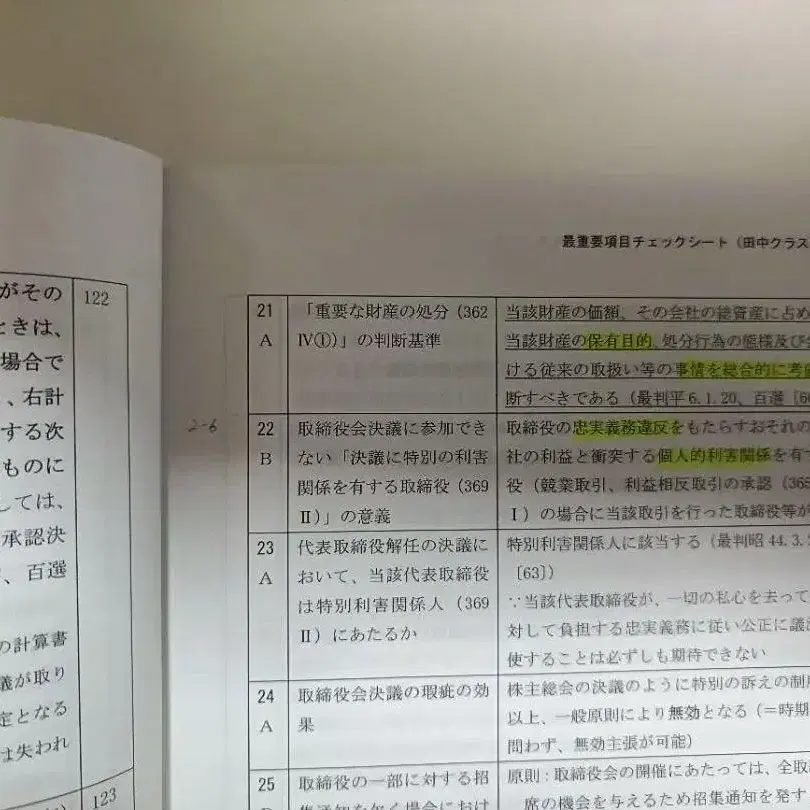 がその
122
ときは、
場合で
、右計
する次
ものに
しては、
承認決
、百選
の計算書
議が取り
定となる
は失われ
123
最重要項目チェックシート（田中クラス
2-6
21
A
「重要な財産の処分（362
Ⅳ①）」の判断基準
当該財産の価額、その会社の総資産に占め
当該財産の保有目的、処分行為の態様及び
ける従来の取扱い等の事情を総合的に考
断すべきである（最判平 6.1.20、百選〔6
22
B
取締役会決議に参加でき
ない「決議に特別の利害
関係を有する取締役（369
Ⅱ）」の意義
取締役の忠実義務違反をもたらすおそれの
社の利益と衝突する個人的利害関係を有す
役（競業取引、利益相反取引の承認（365
Ⅰ）の場合に当該取引を行った取締役等が
23
A
代表取締役解任の決議に
おいて、当該代表取締役
は特別利害関係人（369
Ⅱ）にあたるか
特別利害関係人に該当する（最判昭 44.3.
〔63〕）
∵当該代表取締役が、一切の私心を去って
対して負担する忠実義務に従い公正に議
使することは必ずしも期待できない
24
A
取締役会決議の瑕疵の効
果
株主総会の決議のように特別の訴えの制
以上、一般原則により無効となる（＝時期
問わず、無効主張が可能）
25
取締役の一部に対する招
集通知を欠く場合におけ
原則：取締役会の開催にあたっては、全取
席の機会を与えるため招集通知を発す